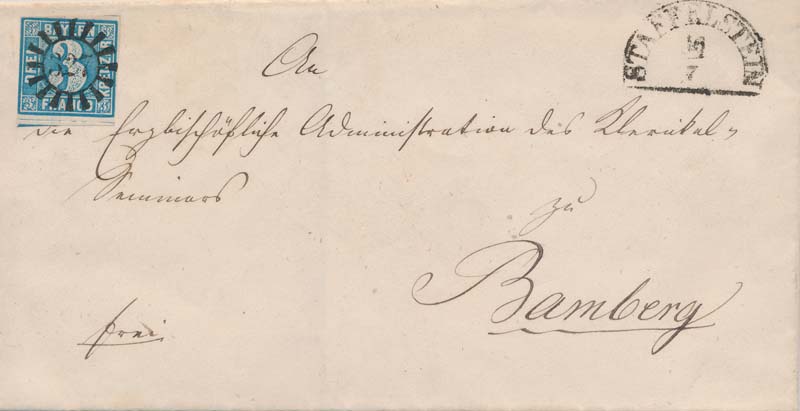 BAYERN
3
FRANCO
STAFFELSTEIN
16
7
An
die Erzbischöfliche Administration des Klerikal-
Seminars
zu
Bamberg
frei